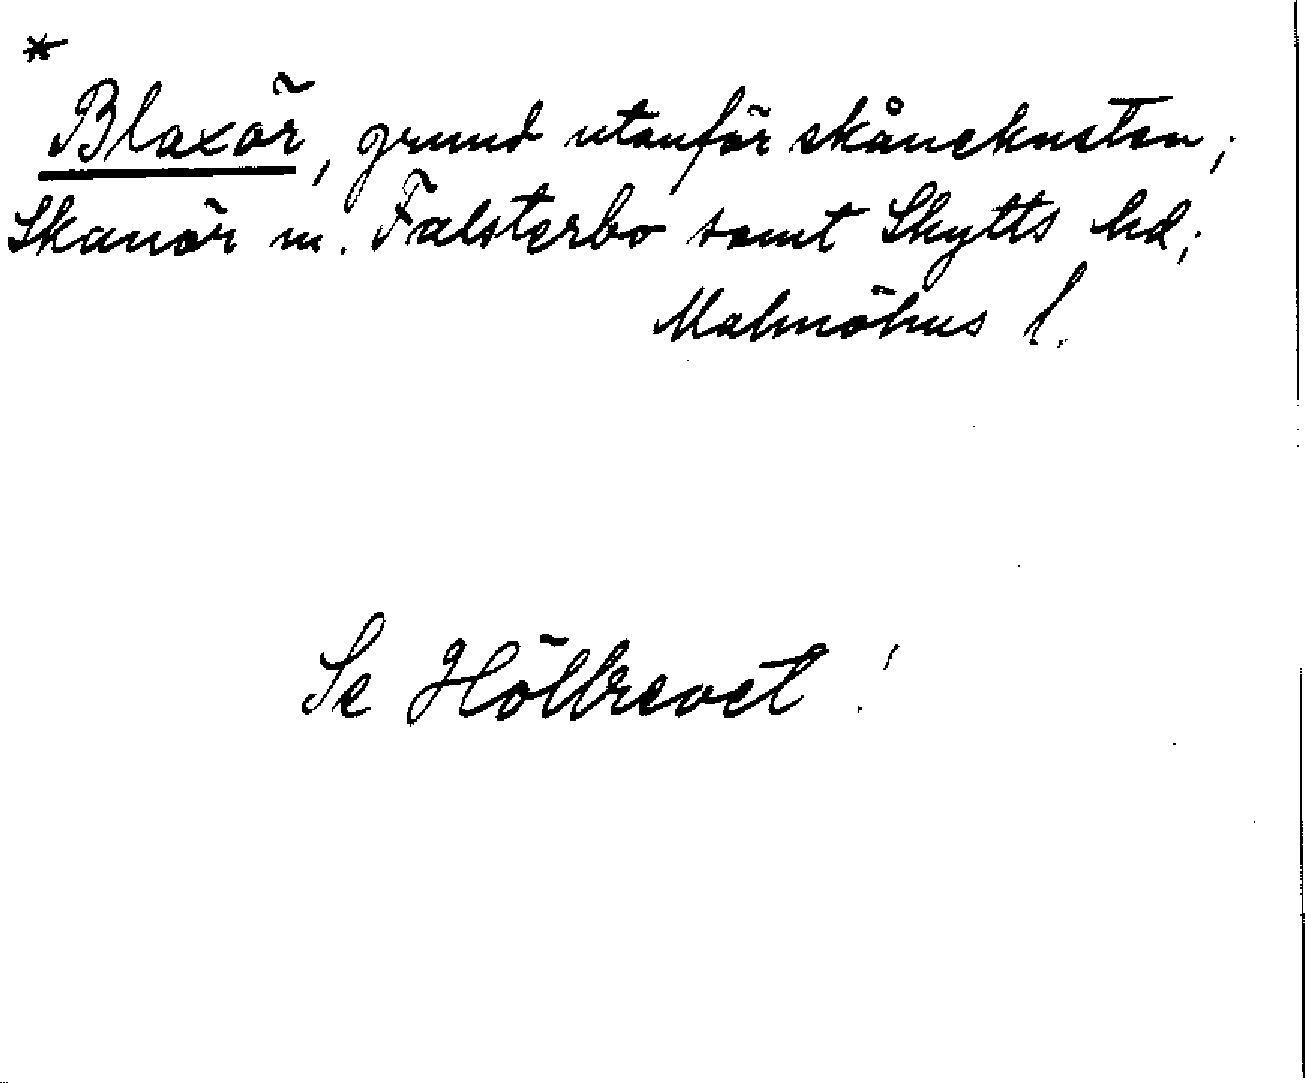 *
Blaxör, grund utanför skånekusten;
Skanör m. Falsterbo samt Skytts hd;
Malmöhus l.
Se Höllrevet!